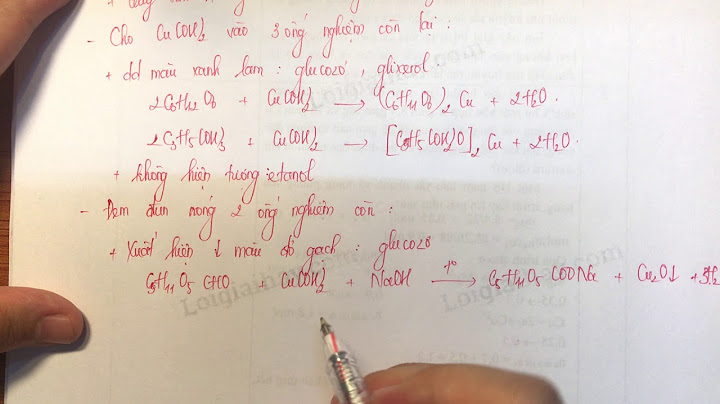 - Cho Cu(OH)2 vào 3 ống nghiệm còn lại :
+ dd màu xanh lam : glucozơ , glixerol
2C6H12O6 + Cu(OH)2 → (C6H11O6)2 Cu + 2H2O.
2C3H5(OH)3 + Cu(OH)2 → [C3H5(OH)2O]2 Cu + 2H2O.
+ không hiện tượng : etanol
- Đem đun nóng 2 ống nghiệm còn :
+ Xuất hiện ↓ màu đỏ gạch : glucozơ
C5H11O5 CHO + Cu(OH)2 + NaOH t° → C5H11O5 COONa + Cu2O↓ + 3H2
Loigiaihay.com